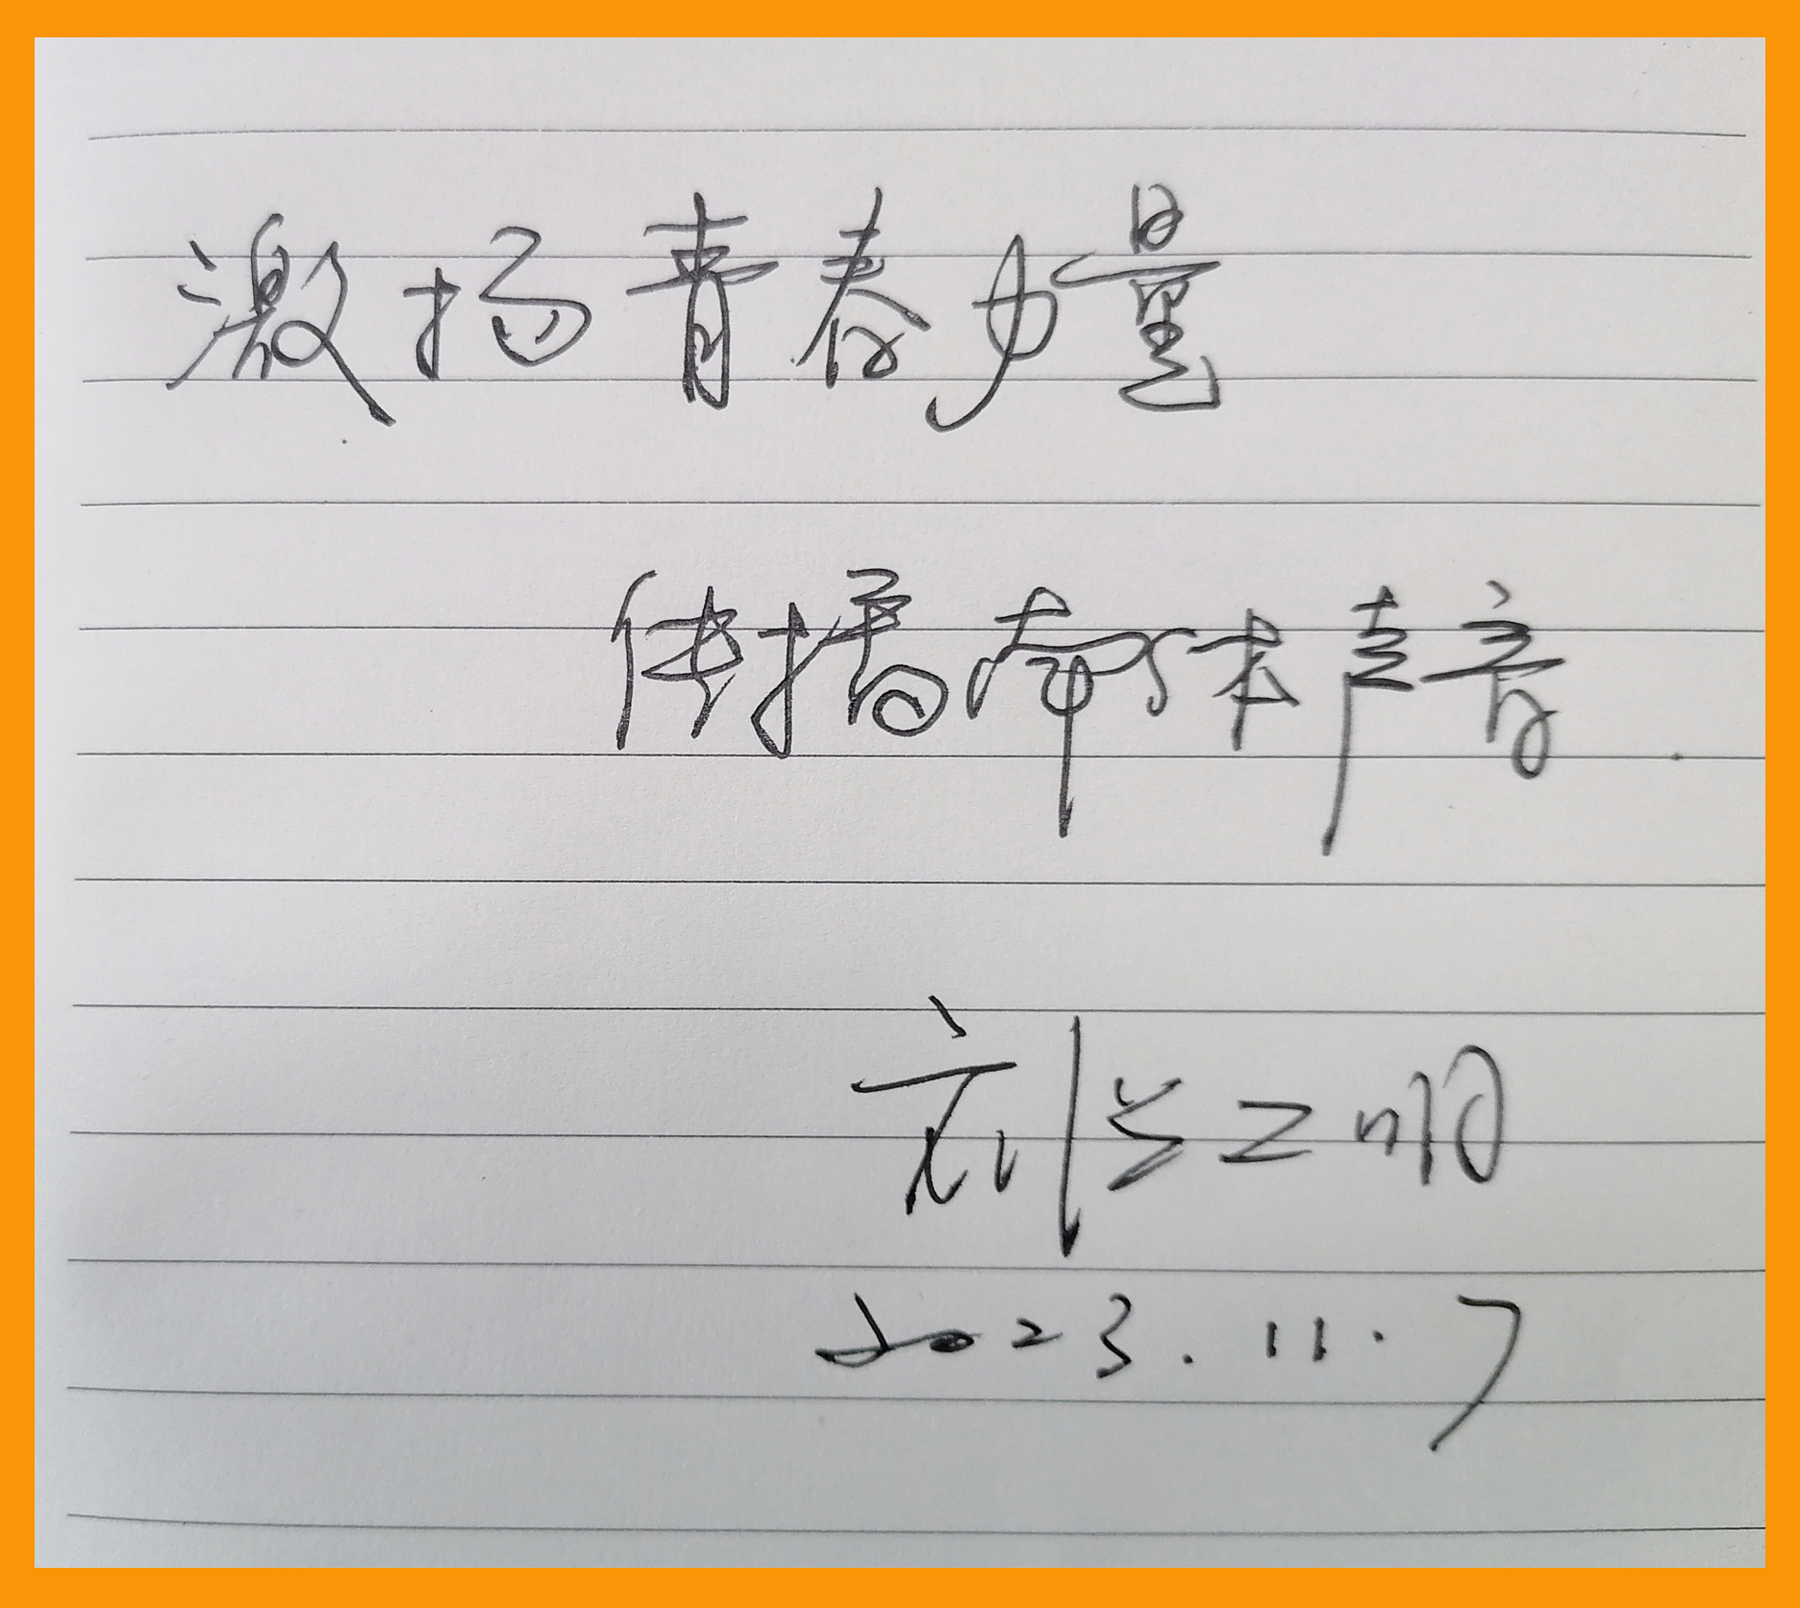 激扬青春力量
传播南体声音
刘 明
2023.11.7